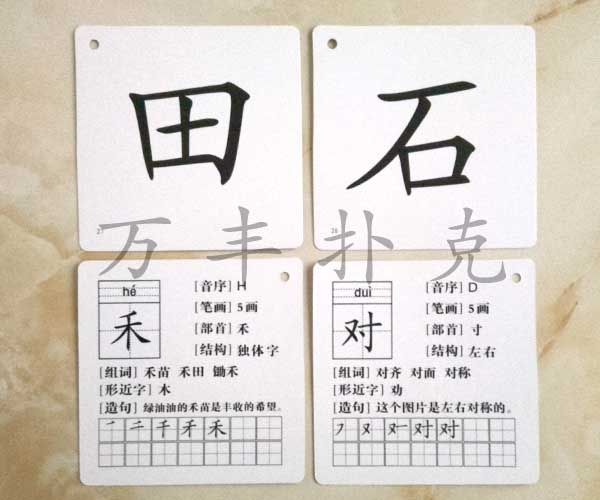 田
石
27
28
万丰扑克
hé
禾
[音序] H
[笔画] 5画
[部首] 禾
[结构] 独体字
[组词] 禾苗 禾田 锄禾
[形近字] 木
[造句] 绿油油的禾苗是丰收的希望。
一 二 千 禾 禾
duì
对
[音序] D
[笔画] 5画
[部首] 寸
[结构] 左右
[组词] 对齐 对面 对称
[形近字] 劝
[造句] 这个图片是左右对称的。
对 对